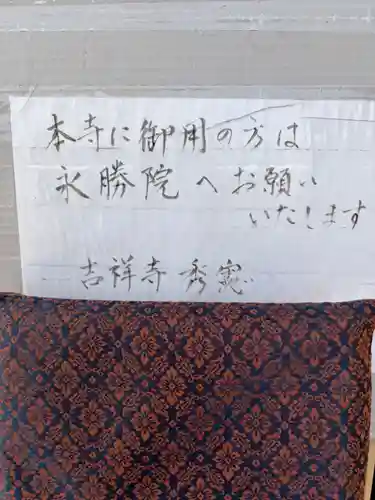 本寺に御用の方は
永勝院へお願い
いたします
吉祥寺 秀憲